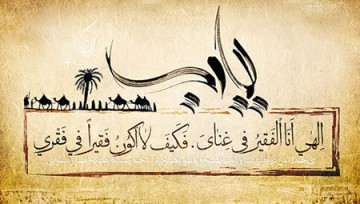 يا رب
إِلهِي أَنَا الْفَقِيرُ فِي غِنَايَ. فَكَيْفَ لا أَكُونُ فَقِيراً فِي فَقْرِي